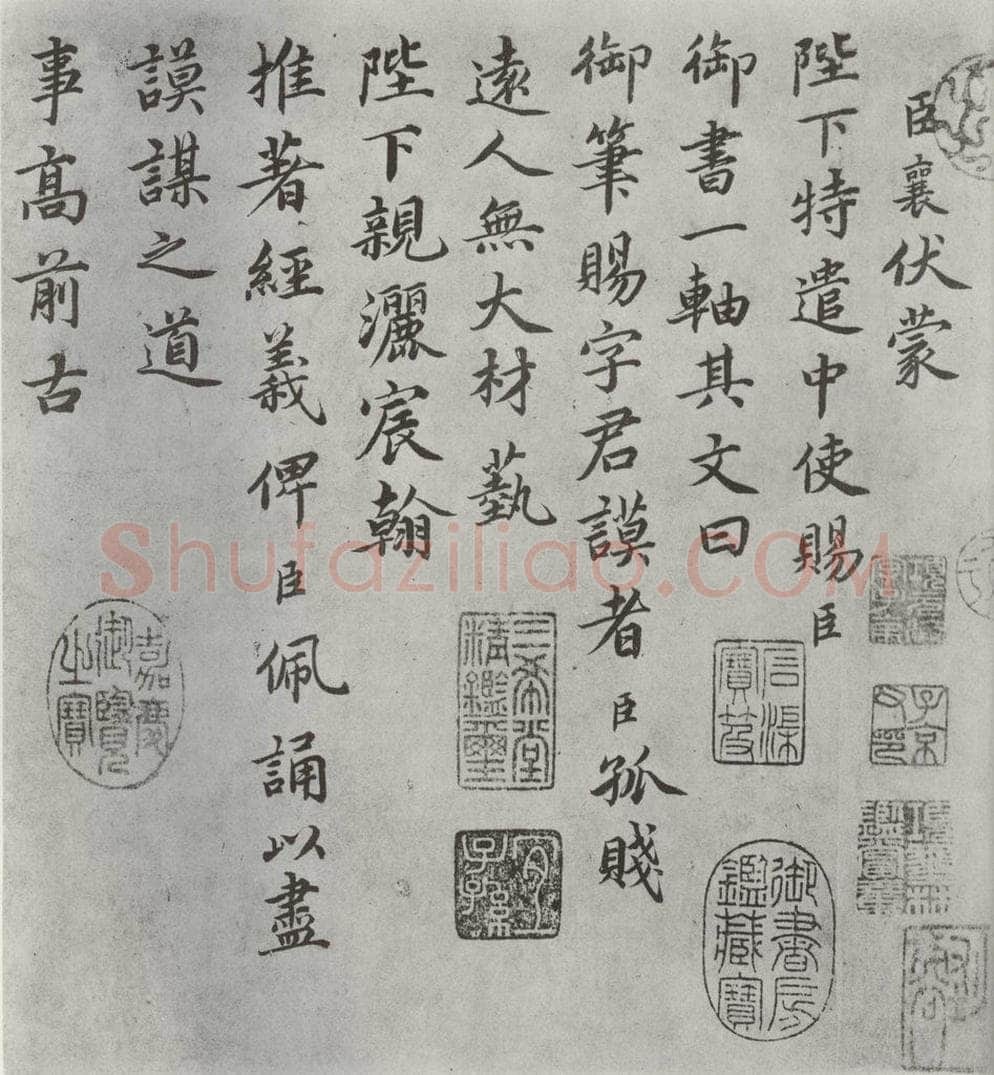 臣襄伏蒙
陛下特遣中使賜臣
御書一軸其文曰
御筆賜字君謨者臣孤賤
遠人無大材藝
陛下親灑宸翰
推著經義俾臣佩誦以盡
謨謀之道
事高前古
Shufaziliao.COM
三希堂精鑑璽
宜子孫
嘉慶御覽之寶
御書房鑑藏寶
子京父印